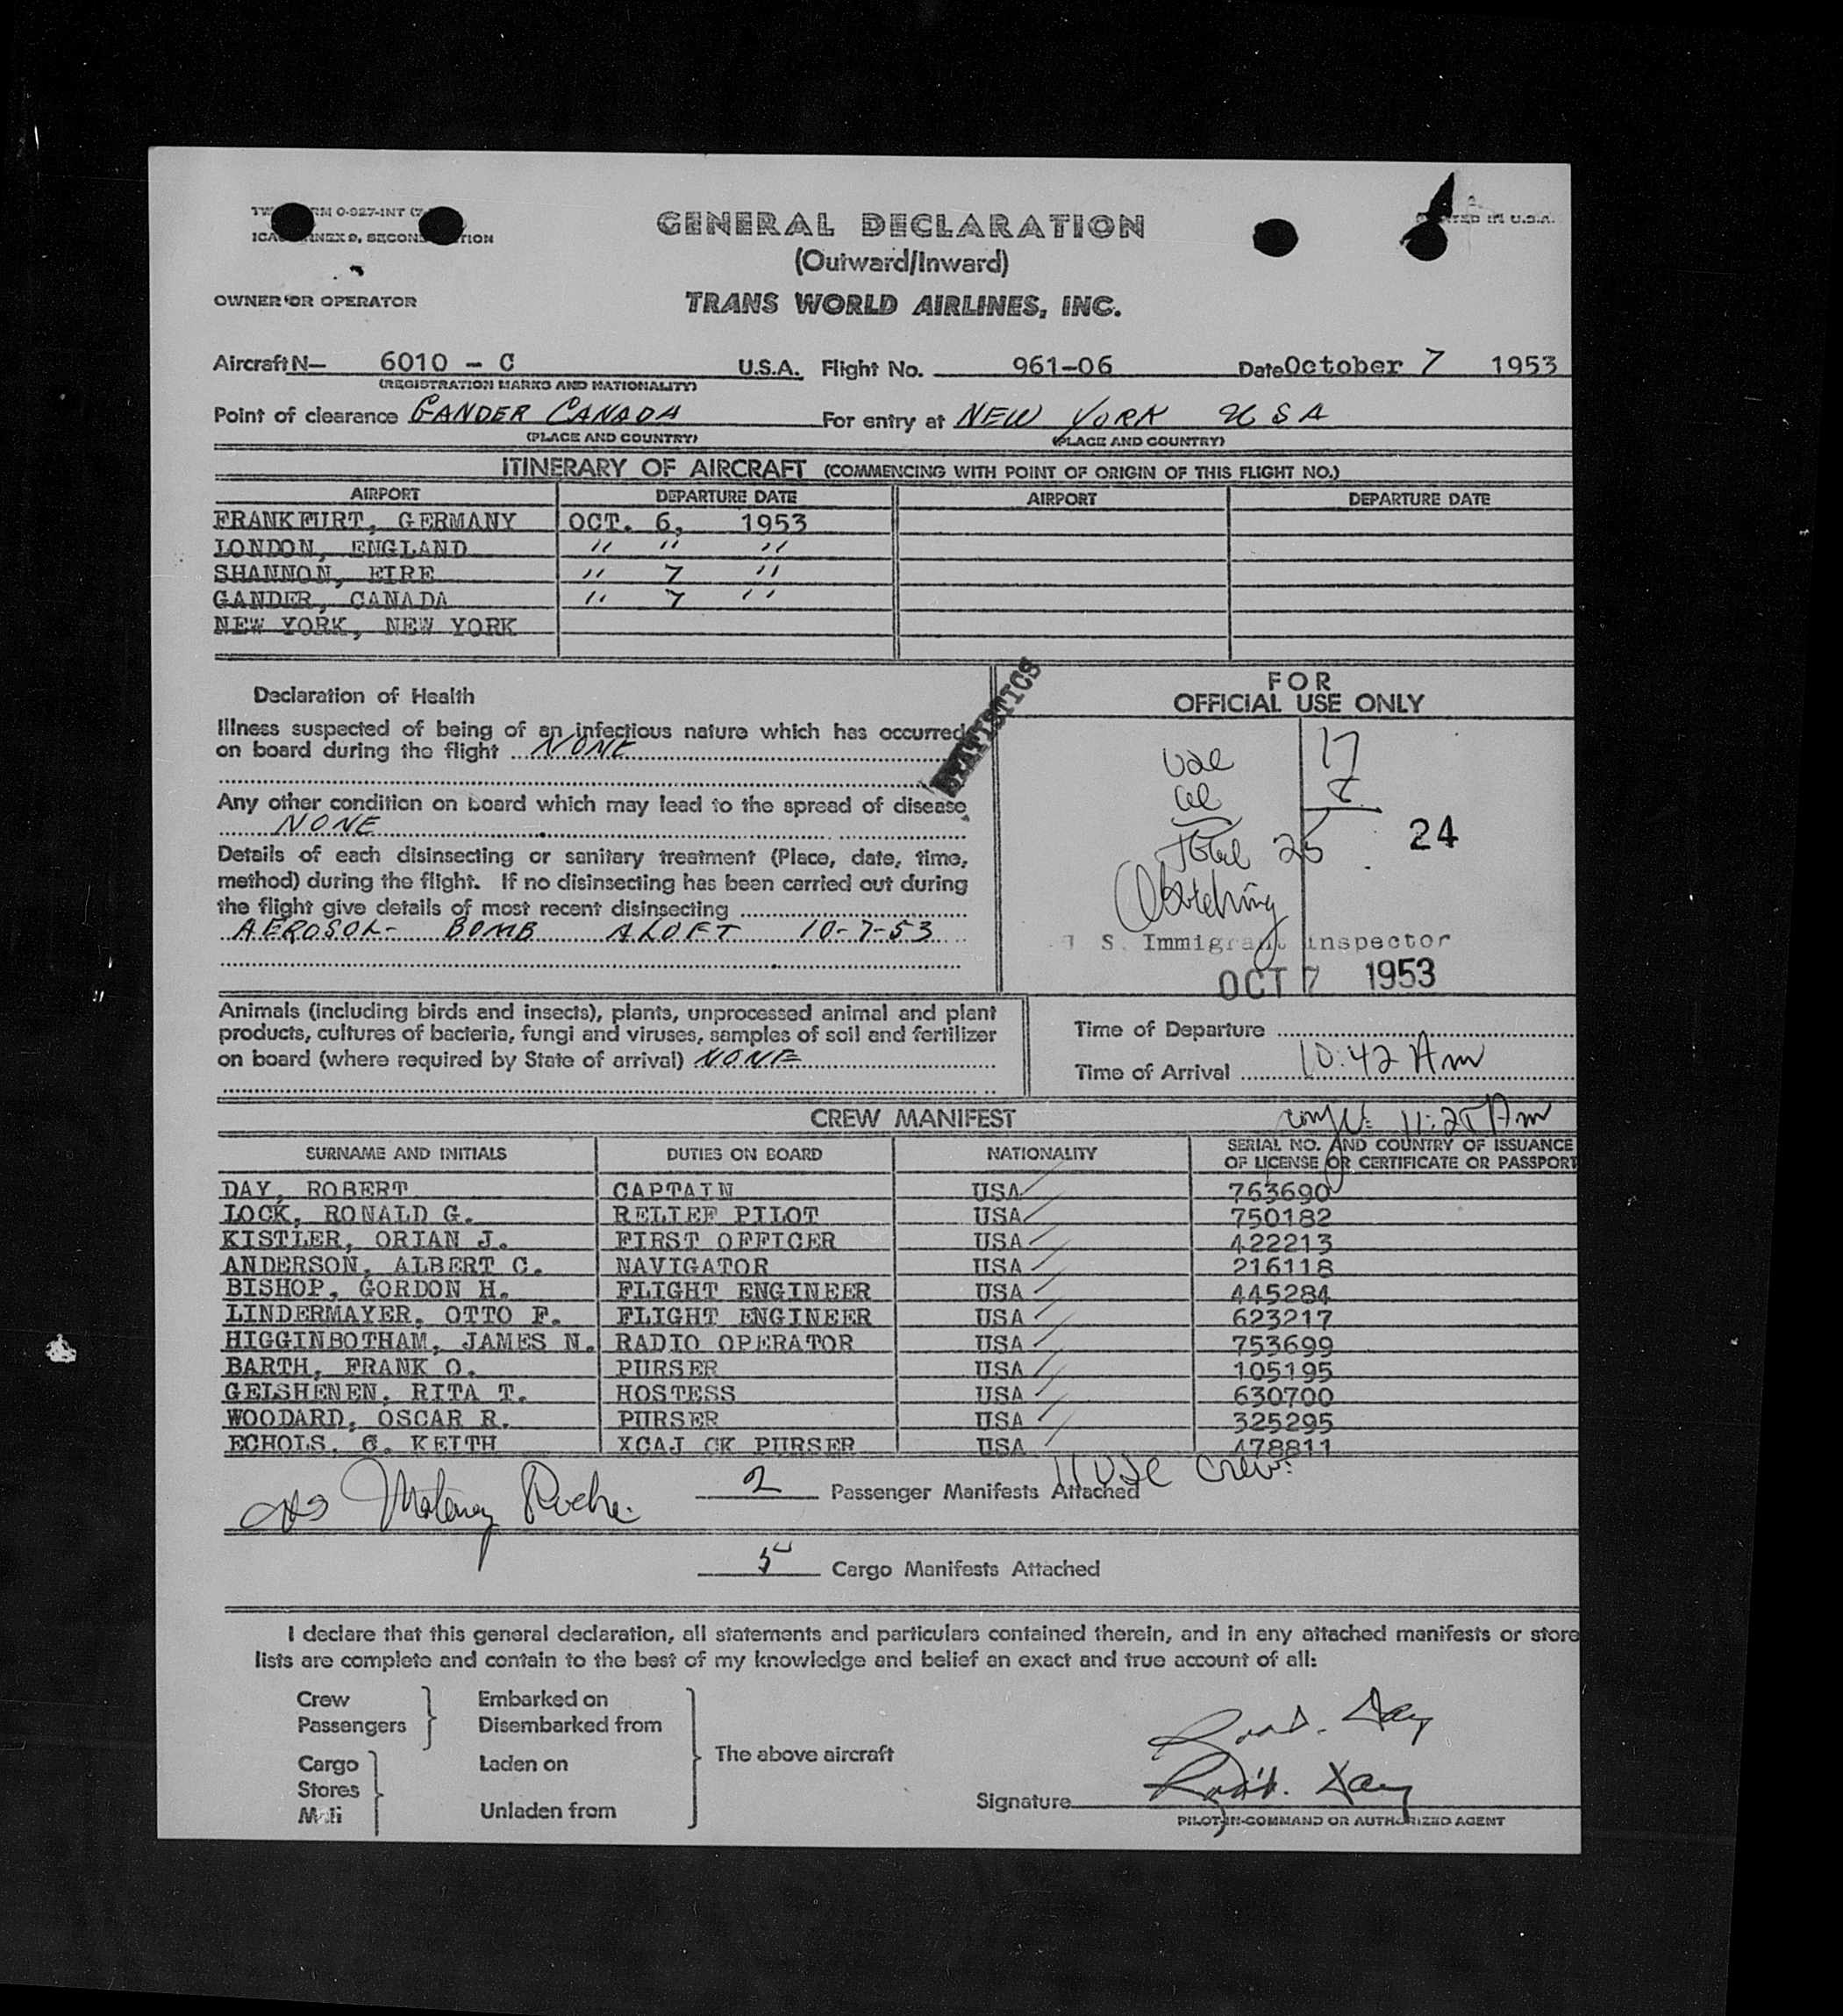 GENERAL DECLARATION
PRINTED IN U.S.A.
(Outward/Inward)
OWNER OR OPERATOR
TRANS WORLD AIRLINES, INC.
Aircraft N— 6010 - C U.S.A. Flight No. 961-06 Date October 7 1953
(REGISTRATION MARKS AND NATIONALITY)
Point of clearance GANDER CANADA For entry at NEW YORK USA
(PLACE AND COUNTRY) (PLACE AND COUNTRY)
ITINERARY OF AIRCRAFT (COMMENCING WITH POINT OF ORIGIN OF THIS FLIGHT NO.)
AIRPORT DEPARTURE DATE AIRPORT DEPARTURE DATE
FRANKFURT, GERMANY OCT. 6, 1953
LONDON, ENGLAND " " "
SHANNON, EIRE " 7 "
GANDER, CANADA " 7 "
NEW YORK, NEW YORK
STATISTICS
Declaration of Health
Illness suspected of being of an infectious nature which has occurred
on board during the flight NONE
Any other condition on board which may lead to the spread of disease
NONE
Details of each disinsecting or sanitary treatment (Place, date, time,
method) during the flight. If no disinsecting has been carried out during
the flight give details of most recent disinsecting
AEROSOL- BOMB ALOFT 10-7-53
FOR
OFFICIAL USE ONLY
17
8
Total 25
24
S. Immigrant Inspector
OCT 7 1953
Animals (including birds and insects), plants, unprocessed animal and plant
products, cultures of bacteria, fungi and viruses, samples of soil and fertilizer
on board (where required by State of arrival) NONE
Time of Departure
Time of Arrival 10:42 Am
CREW MANIFEST
11:25 Am
SURNAME AND INITIALS DUTIES ON BOARD NATIONALITY SERIAL NO. AND COUNTRY OF ISSUANCE
OF LICENSE OR CERTIFICATE OR PASSPORT
DAY, ROBERT CAPTAIN USA 763690
LOCK, RONALD G. RELIEF PILOT USA 750182
KISTLER, ORIAN J. FIRST OFFICER USA 422213
ANDERSON, ALBERT C. NAVIGATOR USA 216118
BISHOP, GORDON H. FLIGHT ENGINEER USA 445284
LINDERMAYER, OTTO F. FLIGHT ENGINEER USA 623217
HIGGINBOTHAM, JAMES N. RADIO OPERATOR USA 753699
BARTH, FRANK O. PURSER USA 105195
GEISHENEN, RITA T. HOSTESS USA 630700
WOODARD, OSCAR R. PURSER USA 325295
ECHOLS, KEITH XCAJ CK PURSER USA 478811
11 USC Crew
2 Passenger Manifests Attached
5 Cargo Manifests Attached
I declare that this general declaration, all statements and particulars contained therein, and in any attached manifests or store
lists are complete and contain to the best of my knowledge and belief an exact and true account of all:
Crew
Passengers
Embarked on
Disembarked from
Cargo
Stores
Mail
Laden on
Unladen from
The above aircraft
Signature Robt. Day
PILOT-IN-COMMAND OR AUTHORIZED AGENT